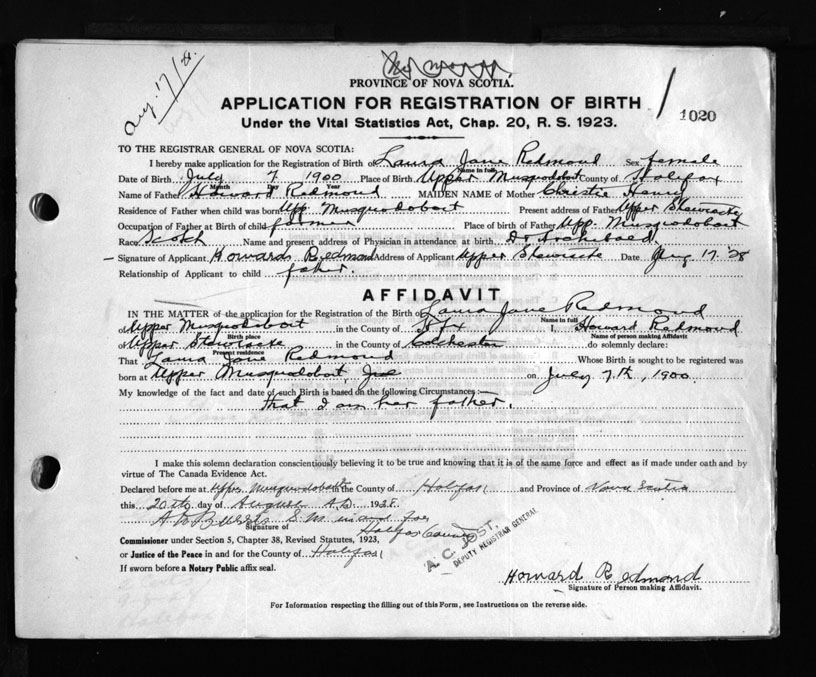 Aug. 17/28.
PROVINCE OF NOVA SCOTIA.
APPLICATION FOR REGISTRATION OF BIRTH
Under the Vital Statistics Act, Chap. 20, R. S. 1923.
1020
TO THE REGISTRAR GENERAL OF NOVA SCOTIA:
I hereby make application for the Registration of Birth of Laura Jane Redmond Sex female
Name in full
Date of Birth July 7 1900 Place of Birth Upper Musquodoboit County of Halifax
Month Day Year
Name of Father Howard Redmond MAIDEN NAME of Mother Christie
Residence of Father when child was born Upp. Musquodoboit Present address of Father Upper Stewiacke
Occupation of Father at Birth of child farmer Place of birth of Father Upp. Musquodoboit
Race Scotch Name and present address of Physician in attendance at birth Dr Archibald.
Signature of Applicant Howard Redmond Address of Applicant Upper Stewiacke Date Aug 17. '28
Relationship of Applicant to child father.
AFFIDAVIT
IN THE MATTER of the application for the Registration of the Birth of Laura Jane Redmond
Name in full
of Upper Musquodoboit in the County of Hfx I, Howard Redmond
Birth place Name of person making Affidavit
of Upper Stewiacke in the County of Colchester do solemnly declare:
Present residence
That Laura Jane Redmond Whose Birth is sought to be registered was
born at Upper Musquodoboit, on July 7th, 1900.
My knowledge of the fact and date of such Birth is based on the following Circumstances:—
that I am her father.
I make this solemn declaration conscientiously believing it to be true and knowing that it is of the same force and effect as if made under oath and by
virtue of The Canada Evidence Act.
Declared before me at Upper Musquodoboit in the County of Halifax and Province of Nova Scotia
this 20th day of August A.D. 1928.
S.M. in and for
Signature of Halifax County
Commissioner under Section 5, Chapter 38, Revised Statutes, 1923,
or Justice of the Peace in and for the County of Halifax
A. C. JOST,
DEPUTY REGISTRAR GENERAL
If sworn before a Notary Public affix seal.
Howard Redmond
Signature of Person making Affidavit.
For Information respecting the filling out of this Form, see Instructions on the reverse side.